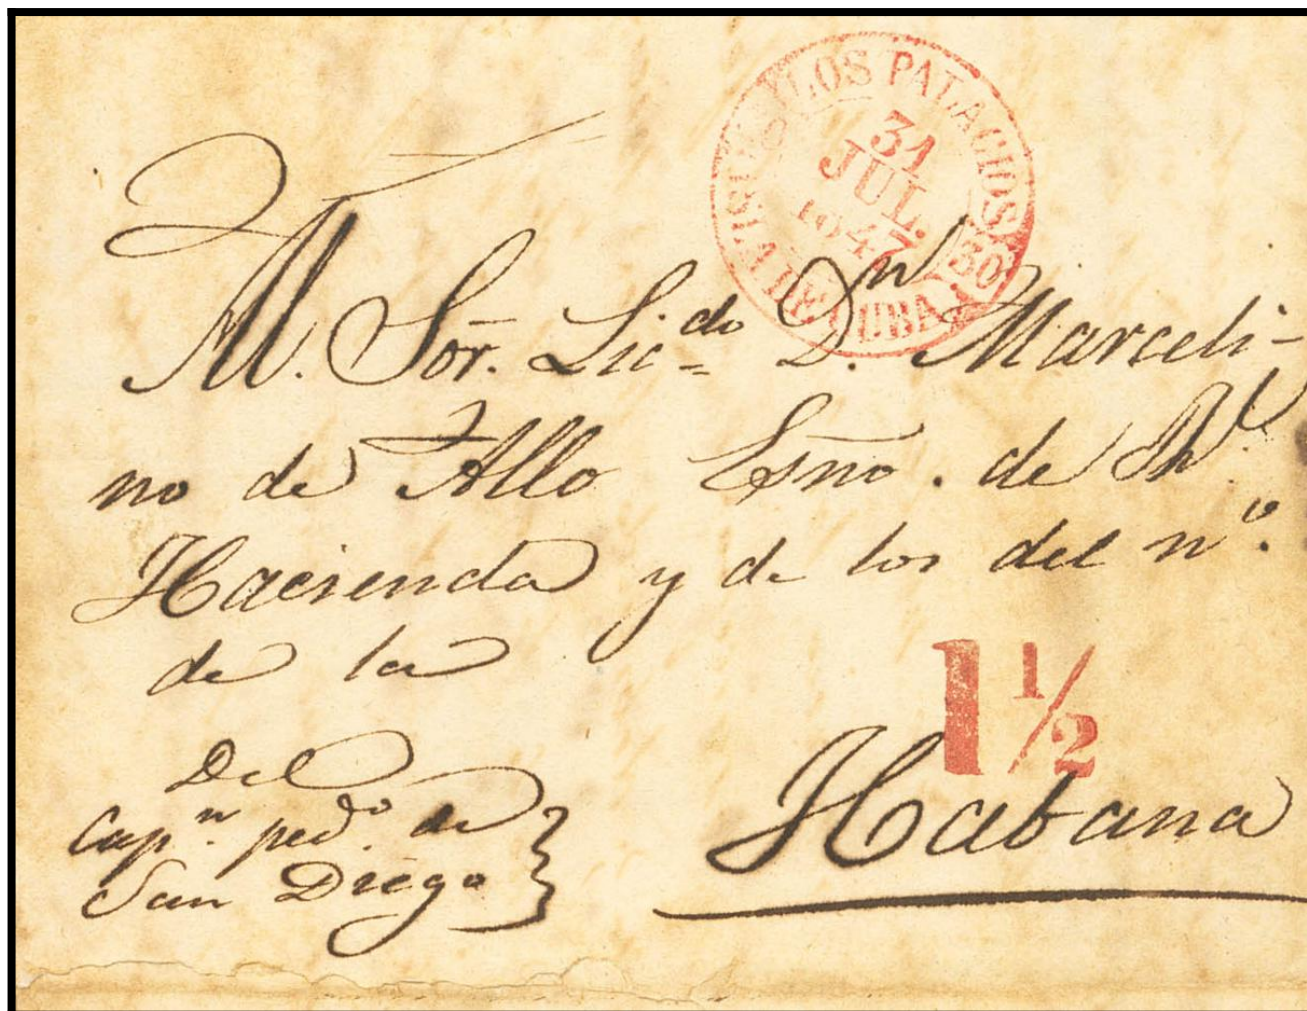 LOS PALACIOS
31
JUL.
1847
ISLA DE CUBA
30
Al. Sor. Licdo. Dn. Marceli-
no de Allo Esno. de Rl.
Hacienda y de los del no.
de la
1 1/2
Habana
Del
Capn. pedo. de
San Diego